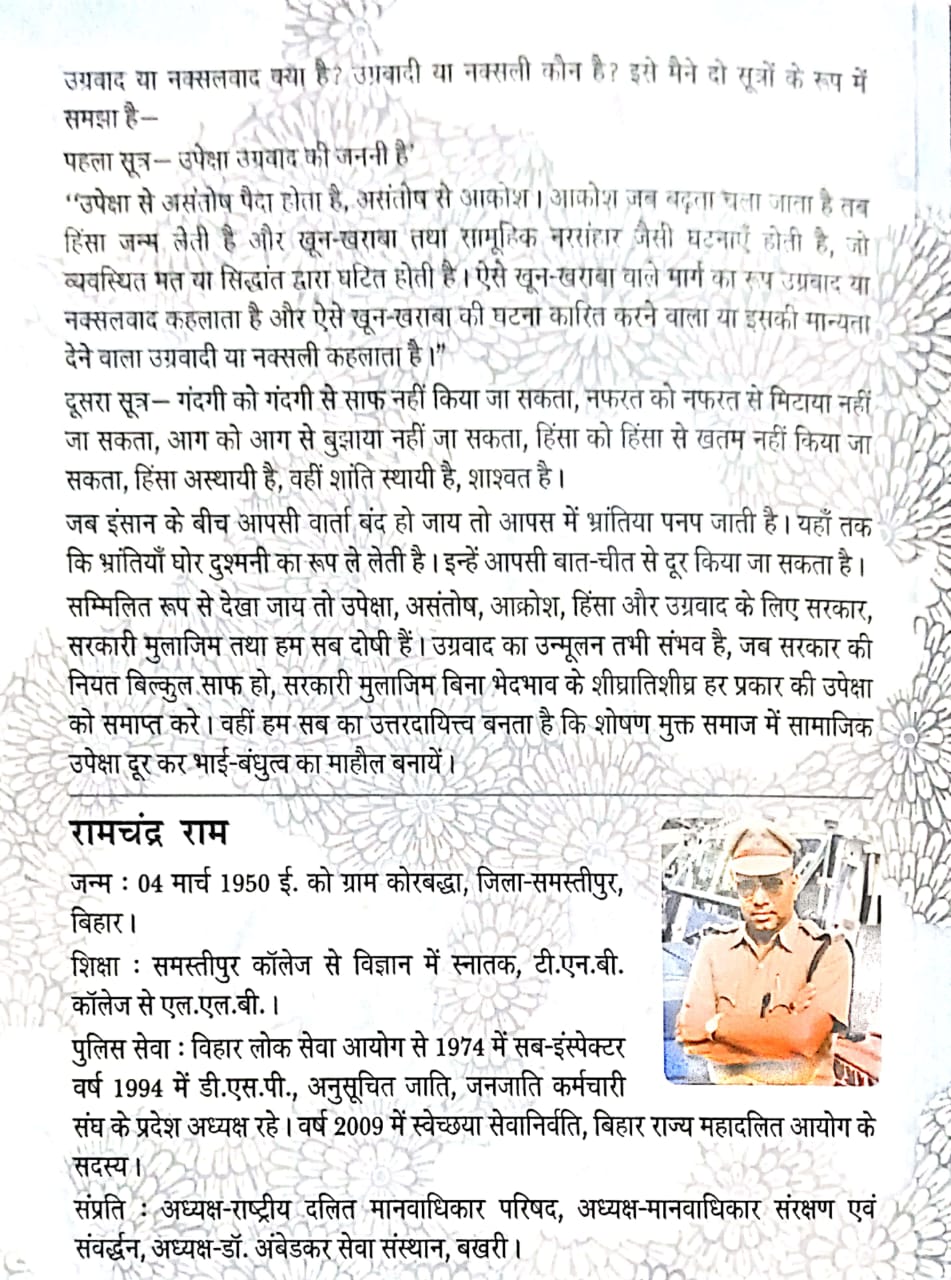 उग्रवाद या नक्सलवाद क्या है? उग्रवादी या नक्सली कौन है? इसे मैने दो सूत्रों के रूप में
समझा है–
पहला सूत्र– उपेक्षा उग्रवाद की जननी है'
“उपेक्षा से असंतोष पैदा होता है, असंतोष से आकोश। आकोश जब बढ़ता चला जाता है तब
हिंसा जन्म लेती है और खून-खराबा तथा सामूहिक नरसंहार जैसी घटनाएँ होती है, जो
व्यवस्थित मत या सिद्धांत द्वारा घटित होती है। ऐसे खून-खराबा वाले मार्ग का रूप उग्रवाद या
नक्सलवाद कहलाता है और ऐसे खून-खराबा की घटना कारित करने वाला या इसकी मान्यता
देने वाला उग्रवादी या नक्सली कहलाता है।”
दूसरा सूत्र– गंदगी को गंदगी से साफ नहीं किया जा सकता, नफरत को नफरत से मिटाया नहीं
जा सकता, आग को आग से बुझाया नहीं जा सकता, हिंसा को हिंसा से खतम नहीं किया जा
सकता, हिंसा अस्थायी है, वहीं शांति स्थायी है, शाश्वत है।
जब इंसान के बीच आपसी वार्ता बंद हो जाय तो आपस में भ्रांतिया पनप जाती है। यहाँ तक
कि भ्रांतियाँ घोर दुश्मनी का रूप ले लेती है। इन्हें आपसी बात-चीत से दूर किया जा सकता है।
सम्मिलित रूप से देखा जाय तो उपेक्षा, असंतोष, आक्रोश, हिंसा और उग्रवाद के लिए सरकार,
सरकारी मुलाजिम तथा हम सब दोषी हैं। उग्रवाद का उन्मूलन तभी संभव है, जब सरकार की
नियत बिल्कुल साफ हो, सरकारी मुलाजिम बिना भेदभाव के शीघ्रातिशीघ्र हर प्रकार की उपेक्षा
को समाप्त करे। वहीं हम सब का उत्तरदायित्त्व बनता है कि शोषण मुक्त समाज में सामाजिक
उपेक्षा दूर कर भाई-बंधुत्व का माहौल बनायें।
रामचंद्र राम
जन्म : 04 मार्च 1950 ई. को ग्राम कोरबद्धा, जिला-समस्तीपुर,
बिहार।
शिक्षा : समस्तीपुर कॉलेज से विज्ञान में स्नातक, टी.एन.बी.
कॉलेज से एल.एल.बी.।
पुलिस सेवा : विहार लोक सेवा आयोग से 1974 में सब-इंस्पेक्टर
वर्ष 1994 में डी.एस.पी., अनुसूचित जाति, जनजाति कर्मचारी
संघ के प्रदेश अध्यक्ष रहे। वर्ष 2009 में स्वेच्छया सेवानिर्वति, बिहार राज्य महादलित आयोग के
सदस्य।
संप्रति : अध्यक्ष-राष्ट्रीय दलित मानवाधिकार परिषद, अध्यक्ष-मानवाधिकार संरक्षण एवं
संवर्द्धन, अध्यक्ष-डॉ. अंबेडकर सेवा संस्थान, बखरी।